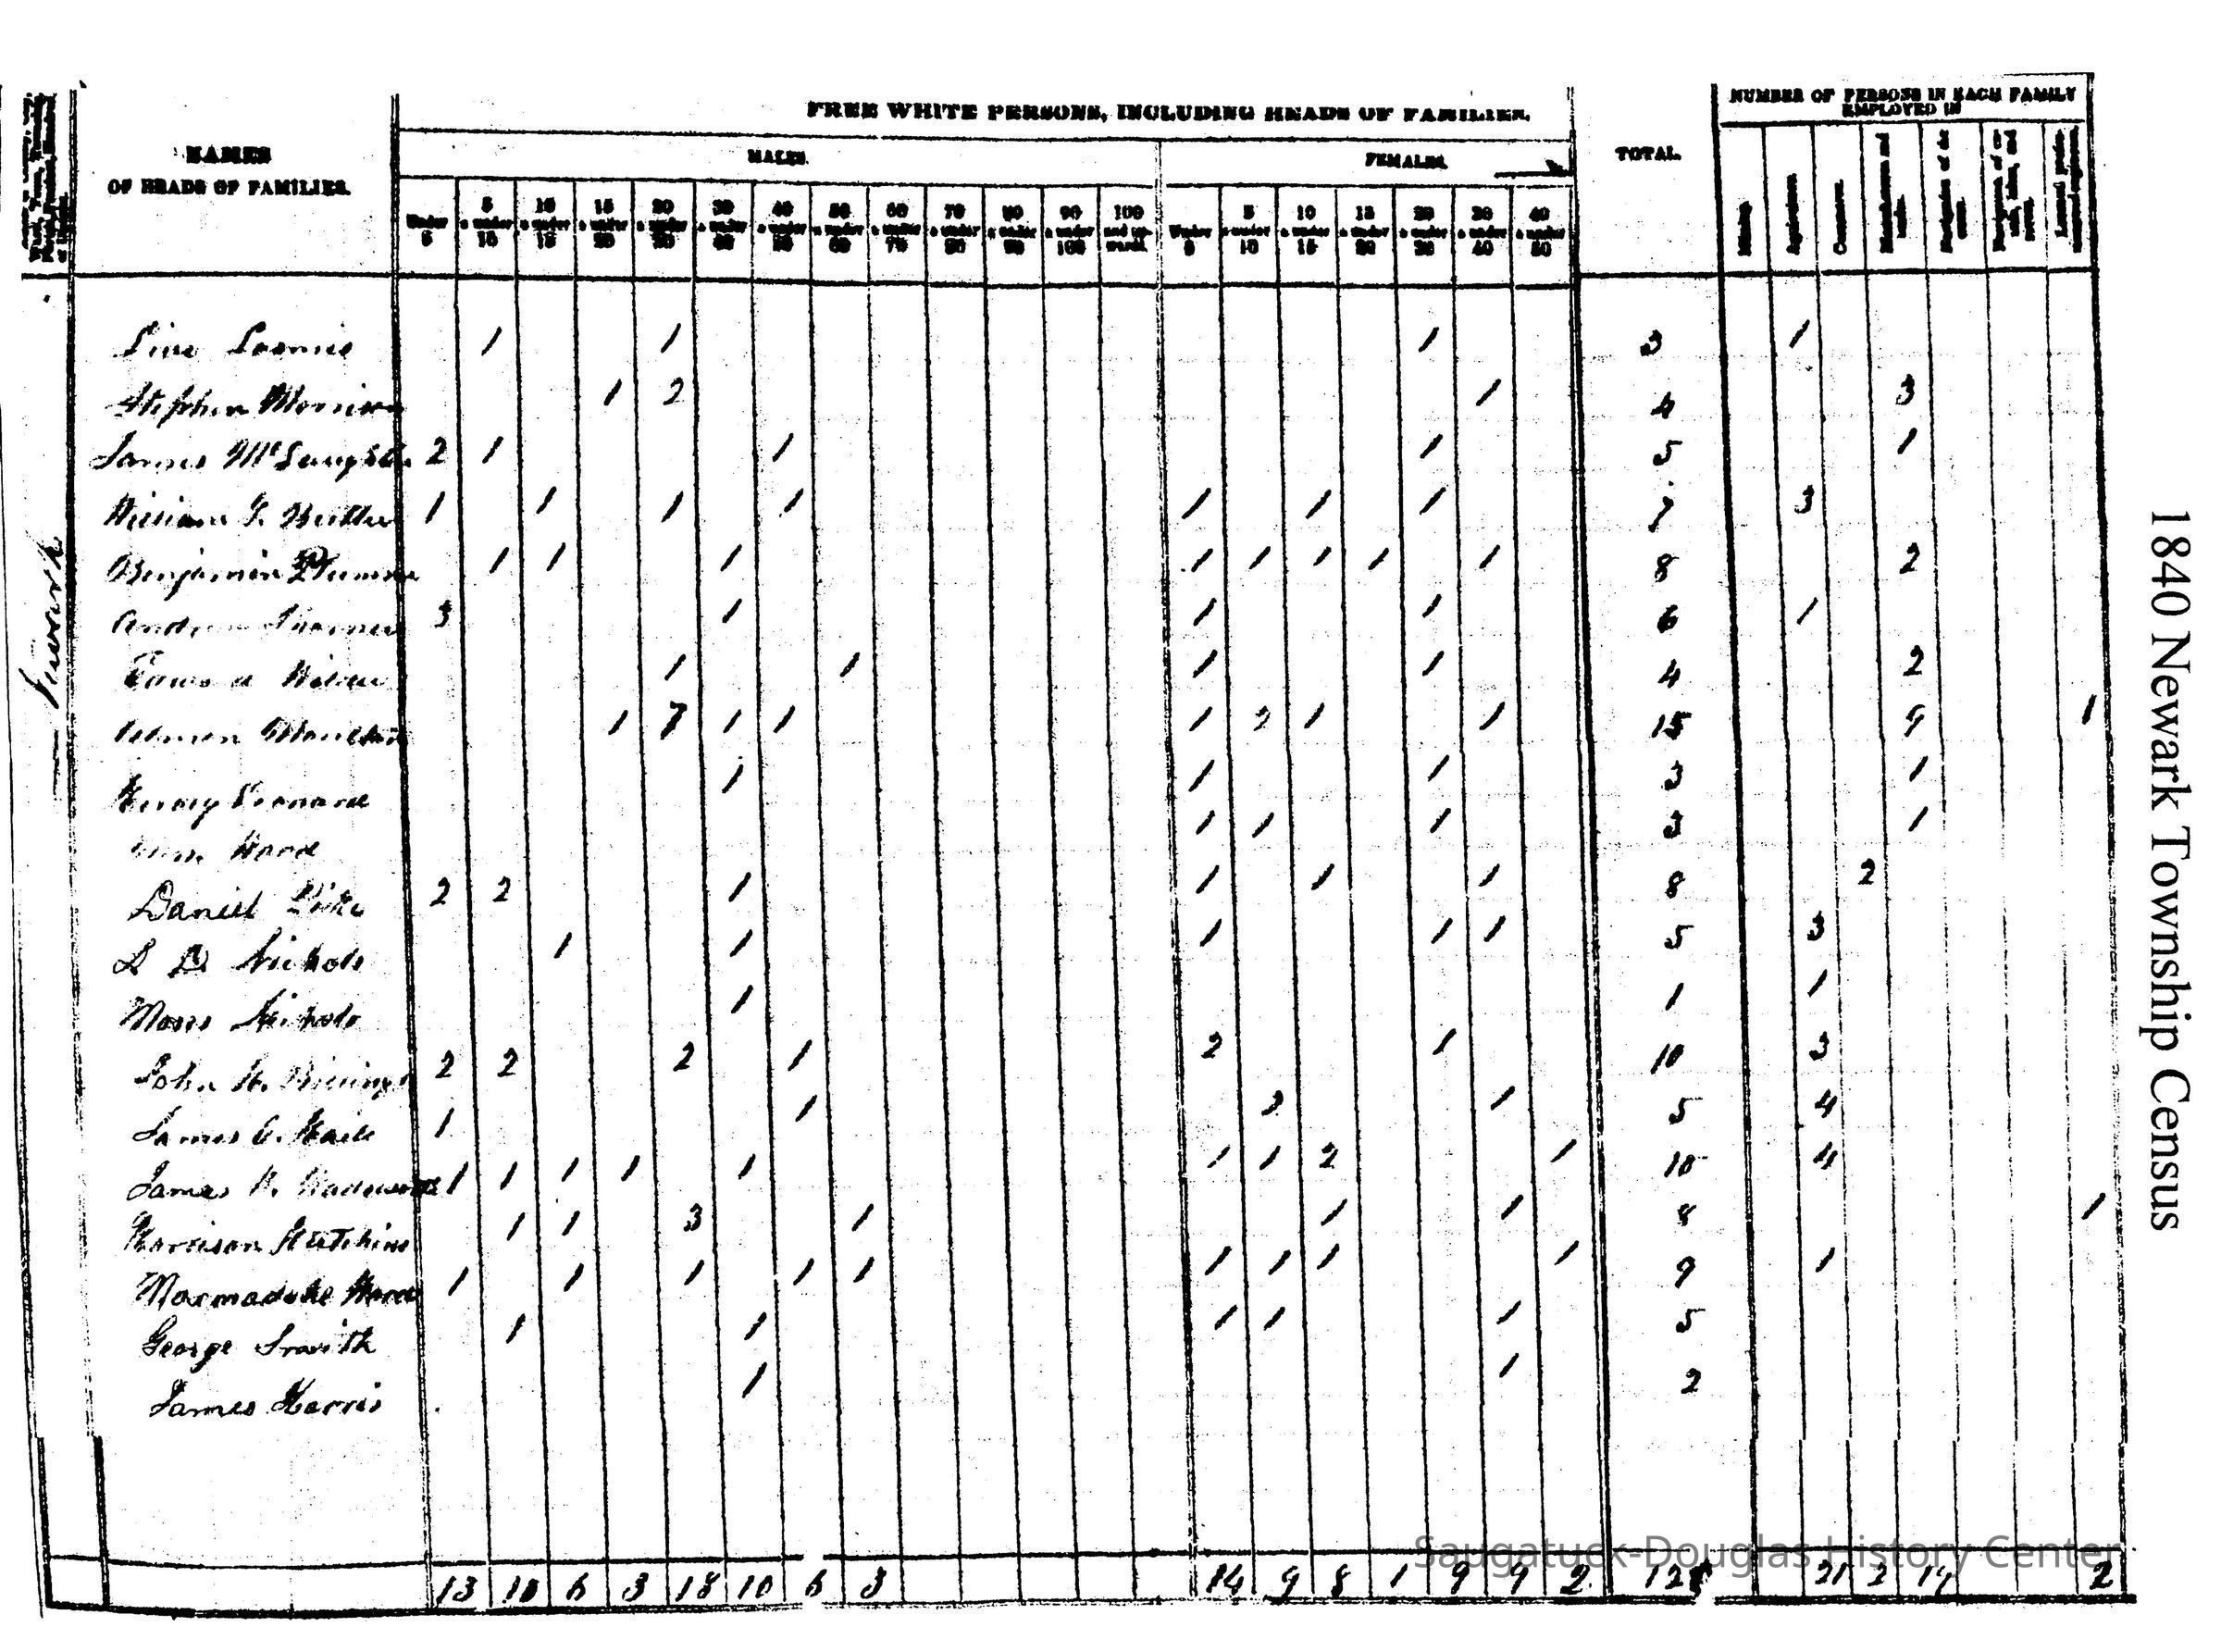 FREE WHITE PERSONS, INCLUDING HEADS OF FAMILIES.
NUMBER OF PERSONS IN EACH FAMILY EMPLOYED IN
NAMES
OF HEADS OF FAMILIES.
MALES.
FEMALES.
TOTAL.
Mining. Agriculture. Commerce. Manufactures and trades. Navigation of the ocean.
Under 5 5 & under 10 10 & under 15 15 & under 20 20 & under 30 30 & under 40 40 & under 50 50 & under 60 60 & under 70 70 & under 80 80 & under 90 90 & under 100 100 and upwards. Under 5 5 & under 10 10 & under 15 15 & under 20 20 & under 30 30 & under 40 40 & under 50
Newark
Loomis 1 1 1 3 1
Stephen Morrison 1 2 1 4 3
James McLaughlin 2 1 1 1 5 1
William G. Butler 1 1 1 1 1 1 1 7 3
Benjamin Plummer 1 1 1 1 1 1 1 1 8 2
Andrew 3 1 1 1 6 1
1 1 1 1 4 2
Moulton 1 7 1 1 1 2 1 1 15 9 1
Leonard 1 1 1 3 1
1 1 1 3 1
Daniel 2 2 1 1 1 1 8 2
Nichols 1 1 1 1 1 5 3
Moses Nichols 1 1 1
John H. Billings 2 2 2 1 2 1 10 3
James C. Haile 1 1 2 1 5 4
James H. Wadsworth 1 1 1 1 1 1 1 2 1 10 4
Harrison Hutchins 1 1 3 1 1 1 8 1
Marmaduke Wood 1 1 1 1 1 1 1 1 1 9 1
George Smith 1 1 1 1 1 5
James Harris 1 1 2
13 10 6 3 18 10 6 3 14 9 8 1 9 9 2 21 2 19 2
1840 Newark Township Census
Saugatuck-Douglas History Center